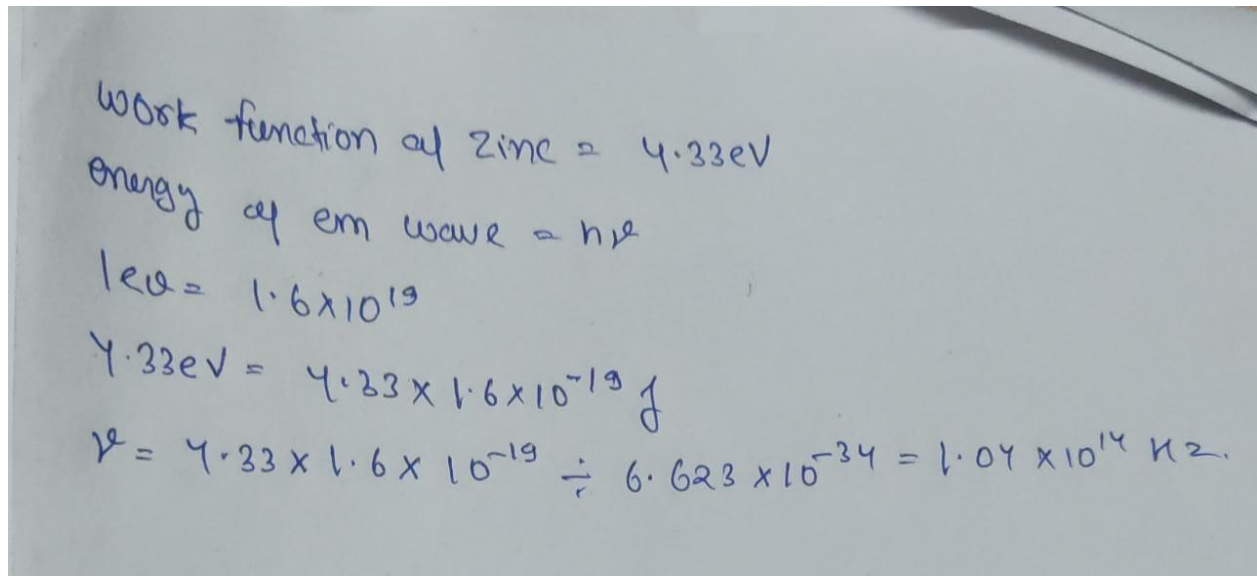 work function of zinc = 4.33eV
energy of em wave = hν
1ev= 1.6×10¹⁹
4.33eV = 4.33 × 1.6 × 10⁻¹⁹ J
ν = 4.33 × 1.6 × 10⁻¹⁹ ÷ 6.623 × 10⁻³⁴ = 1.04 × 10¹⁴ Hz.